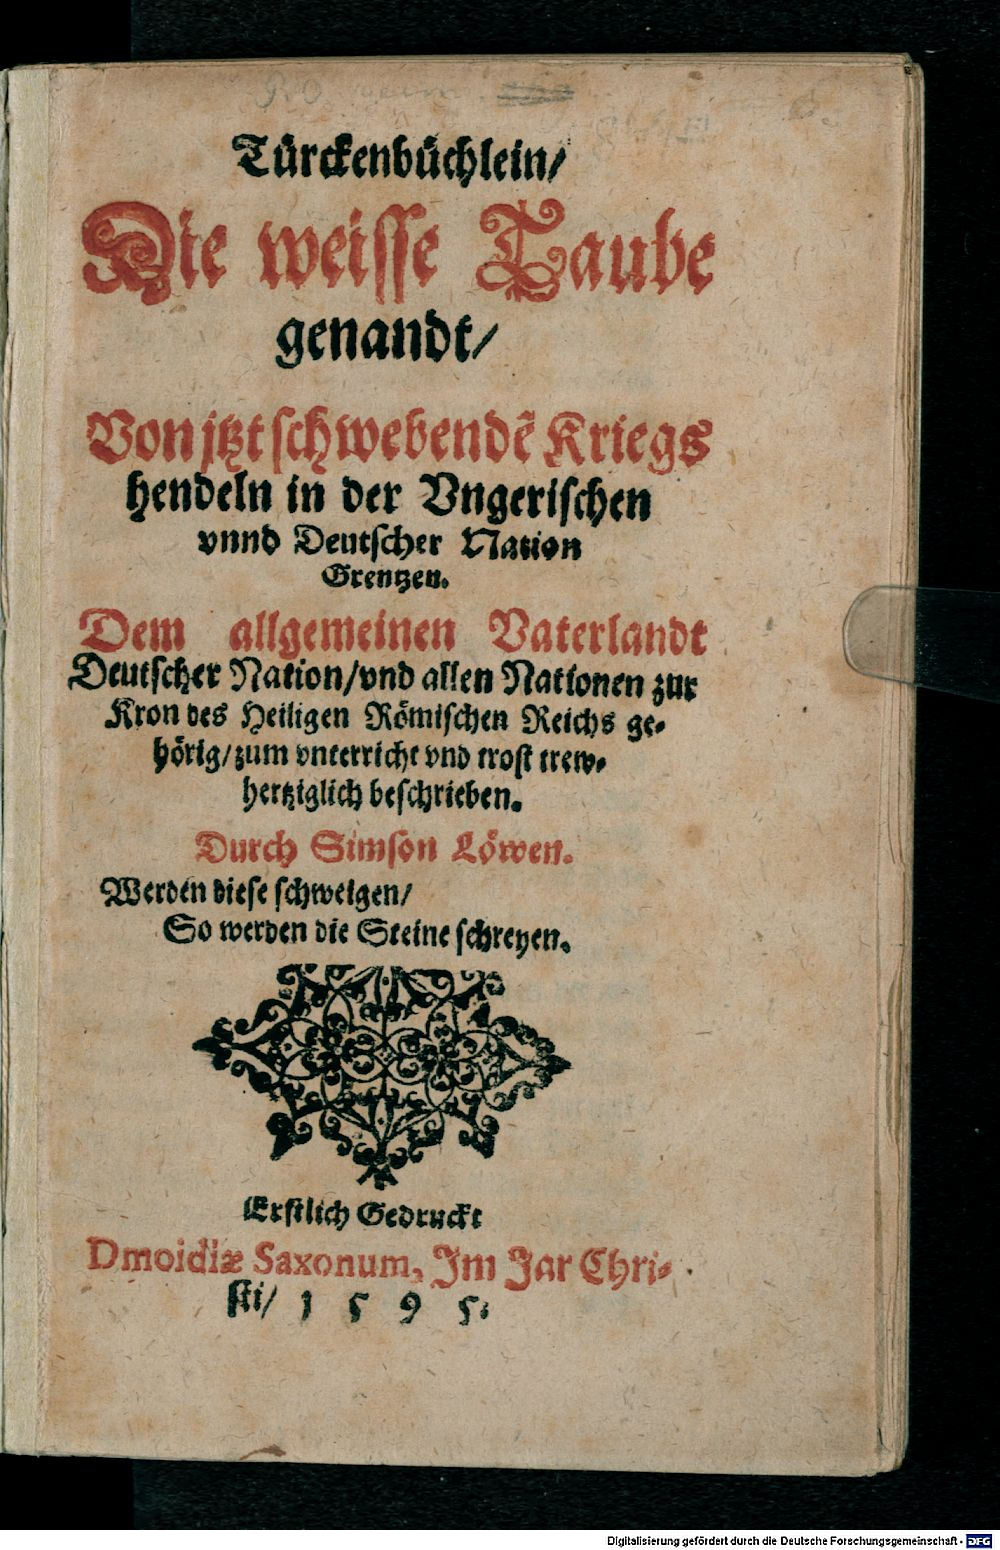 Türckenbüchlein/
Die weisse Taube
genandt/
Von jtzt schwebendẽ Kriegs
hendeln in der Vngerischen
vnnd Deutscher Nation
Grentzen.
Dem allgemeinen Vaterlandt
Deutscher Nation/vnd allen Nationen zur
Kron des Heiligen Römischen Reichs ge-
hörig/zum vnterricht vnd trost trew-
hertziglich beschrieben.
Durch Simson Löwen.
Werden diese schweigen/
So werden die Steine schreyen.
Erstlich Gedruckt
Dmoidiæ Saxonum, Im Jar Chri-
sti/ 1 5 9 5.
Digitalisierung gefördert durch die Deutsche Forschungsgemeinschaft - DFG